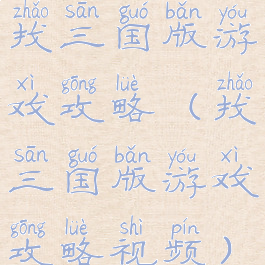 zhǎo sān guó bǎn yóu
找三国版游
xì gōng lüè zhǎo
戏攻略（找
sān guó bǎn yóu xì
三国版游戏
gōng lüè shì pín
攻略视频）